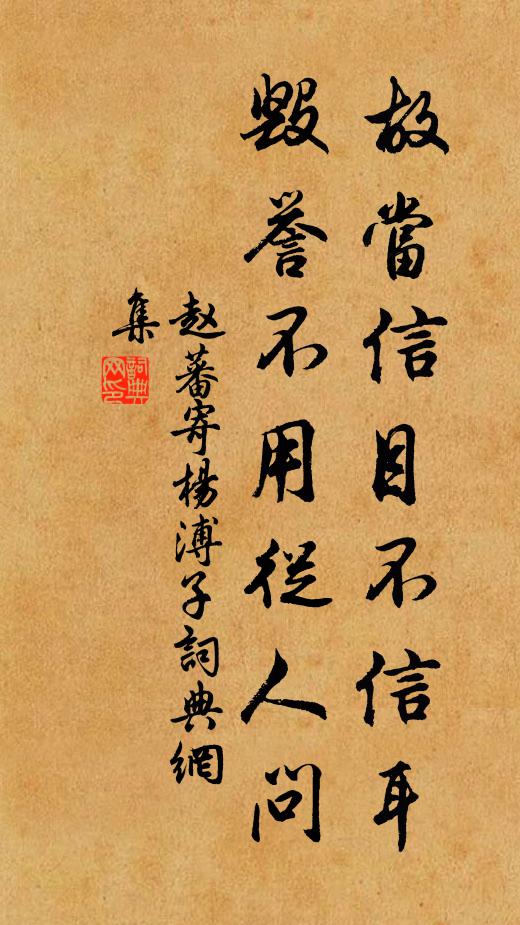 故當信目不信耳
毀譽不用從人問
赵蕃寄楊溥子詞典網
集
詞典
网印